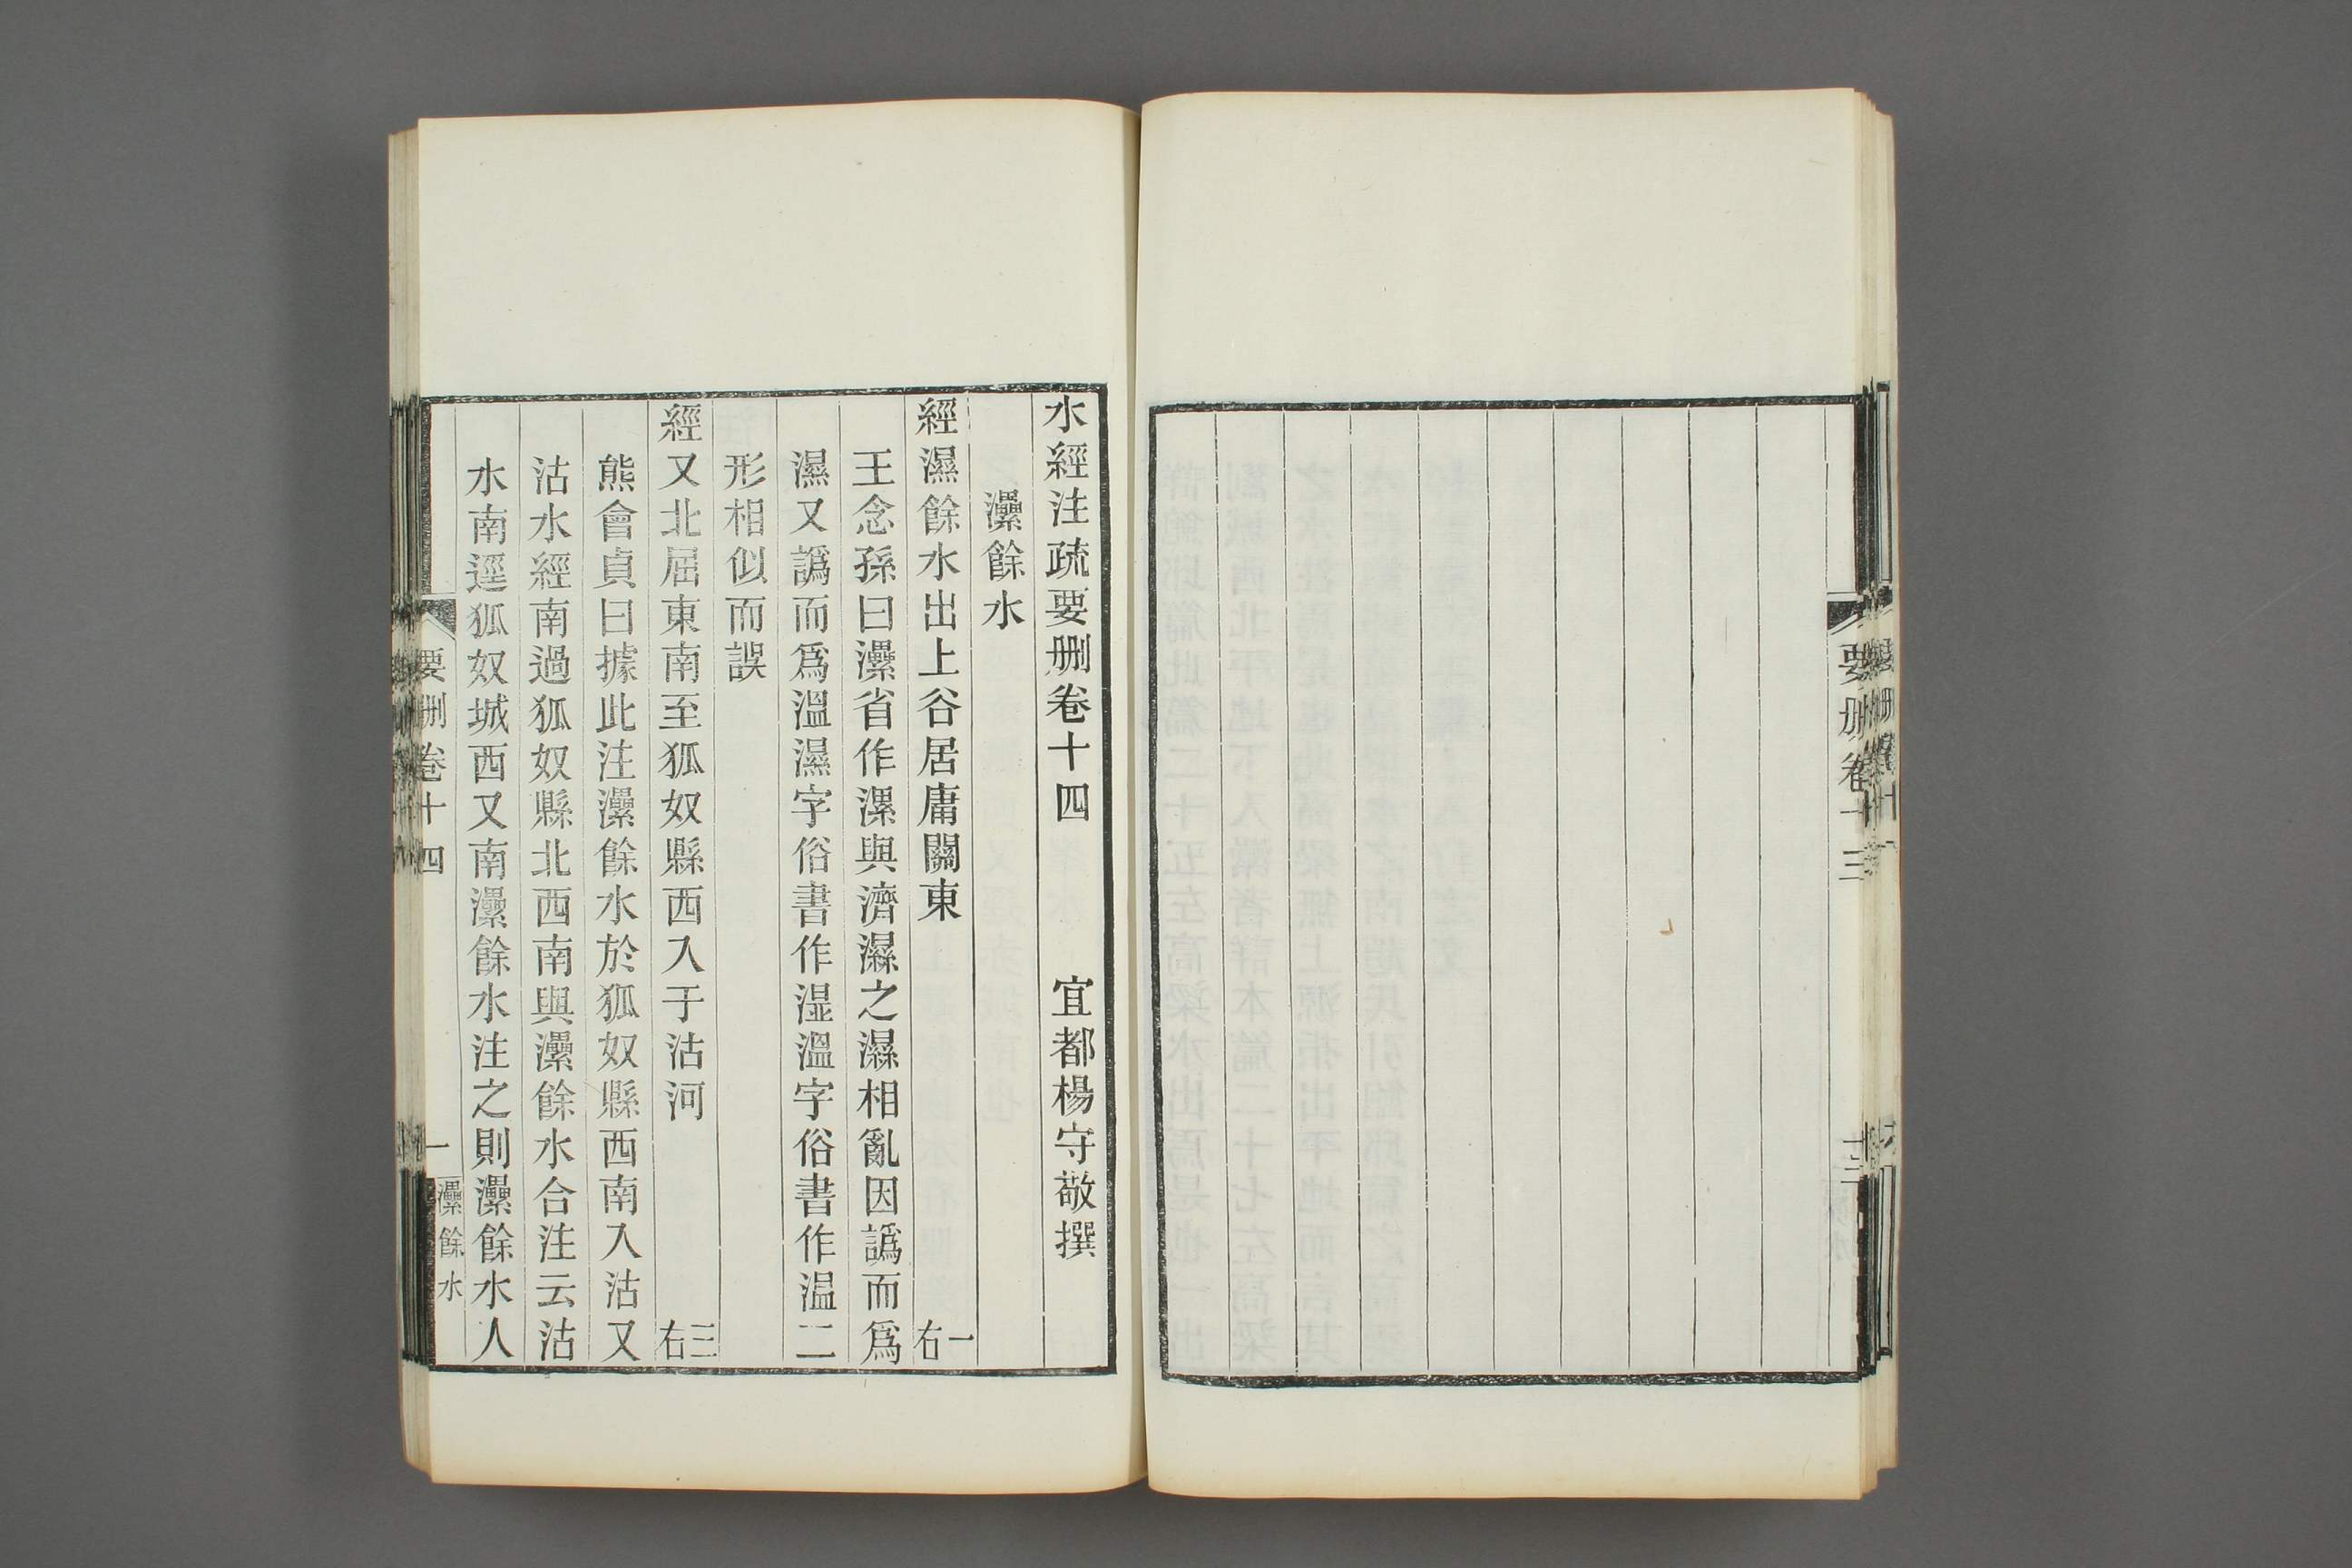 要刪卷十三
十三
水經注疏要刪卷十四 宜都楊守敬撰
灅餘水
經濕餘水出上谷居庸關東 一右
王念孫曰灅省作漯與濟濕之濕相亂因譌而爲
濕又譌而爲溫濕字俗書作湿溫字俗書作温二
形相似而誤
經又北屈東南至狐奴縣西入于沽河 三右
熊會貞曰據此注灅餘水於狐奴縣西南入沽又
沽水經南過狐奴縣北西南與灅餘水合注云沽
水南逕狐奴城西又南灅餘水注之則灅餘水人
要刪卷十四
一
灅餘水